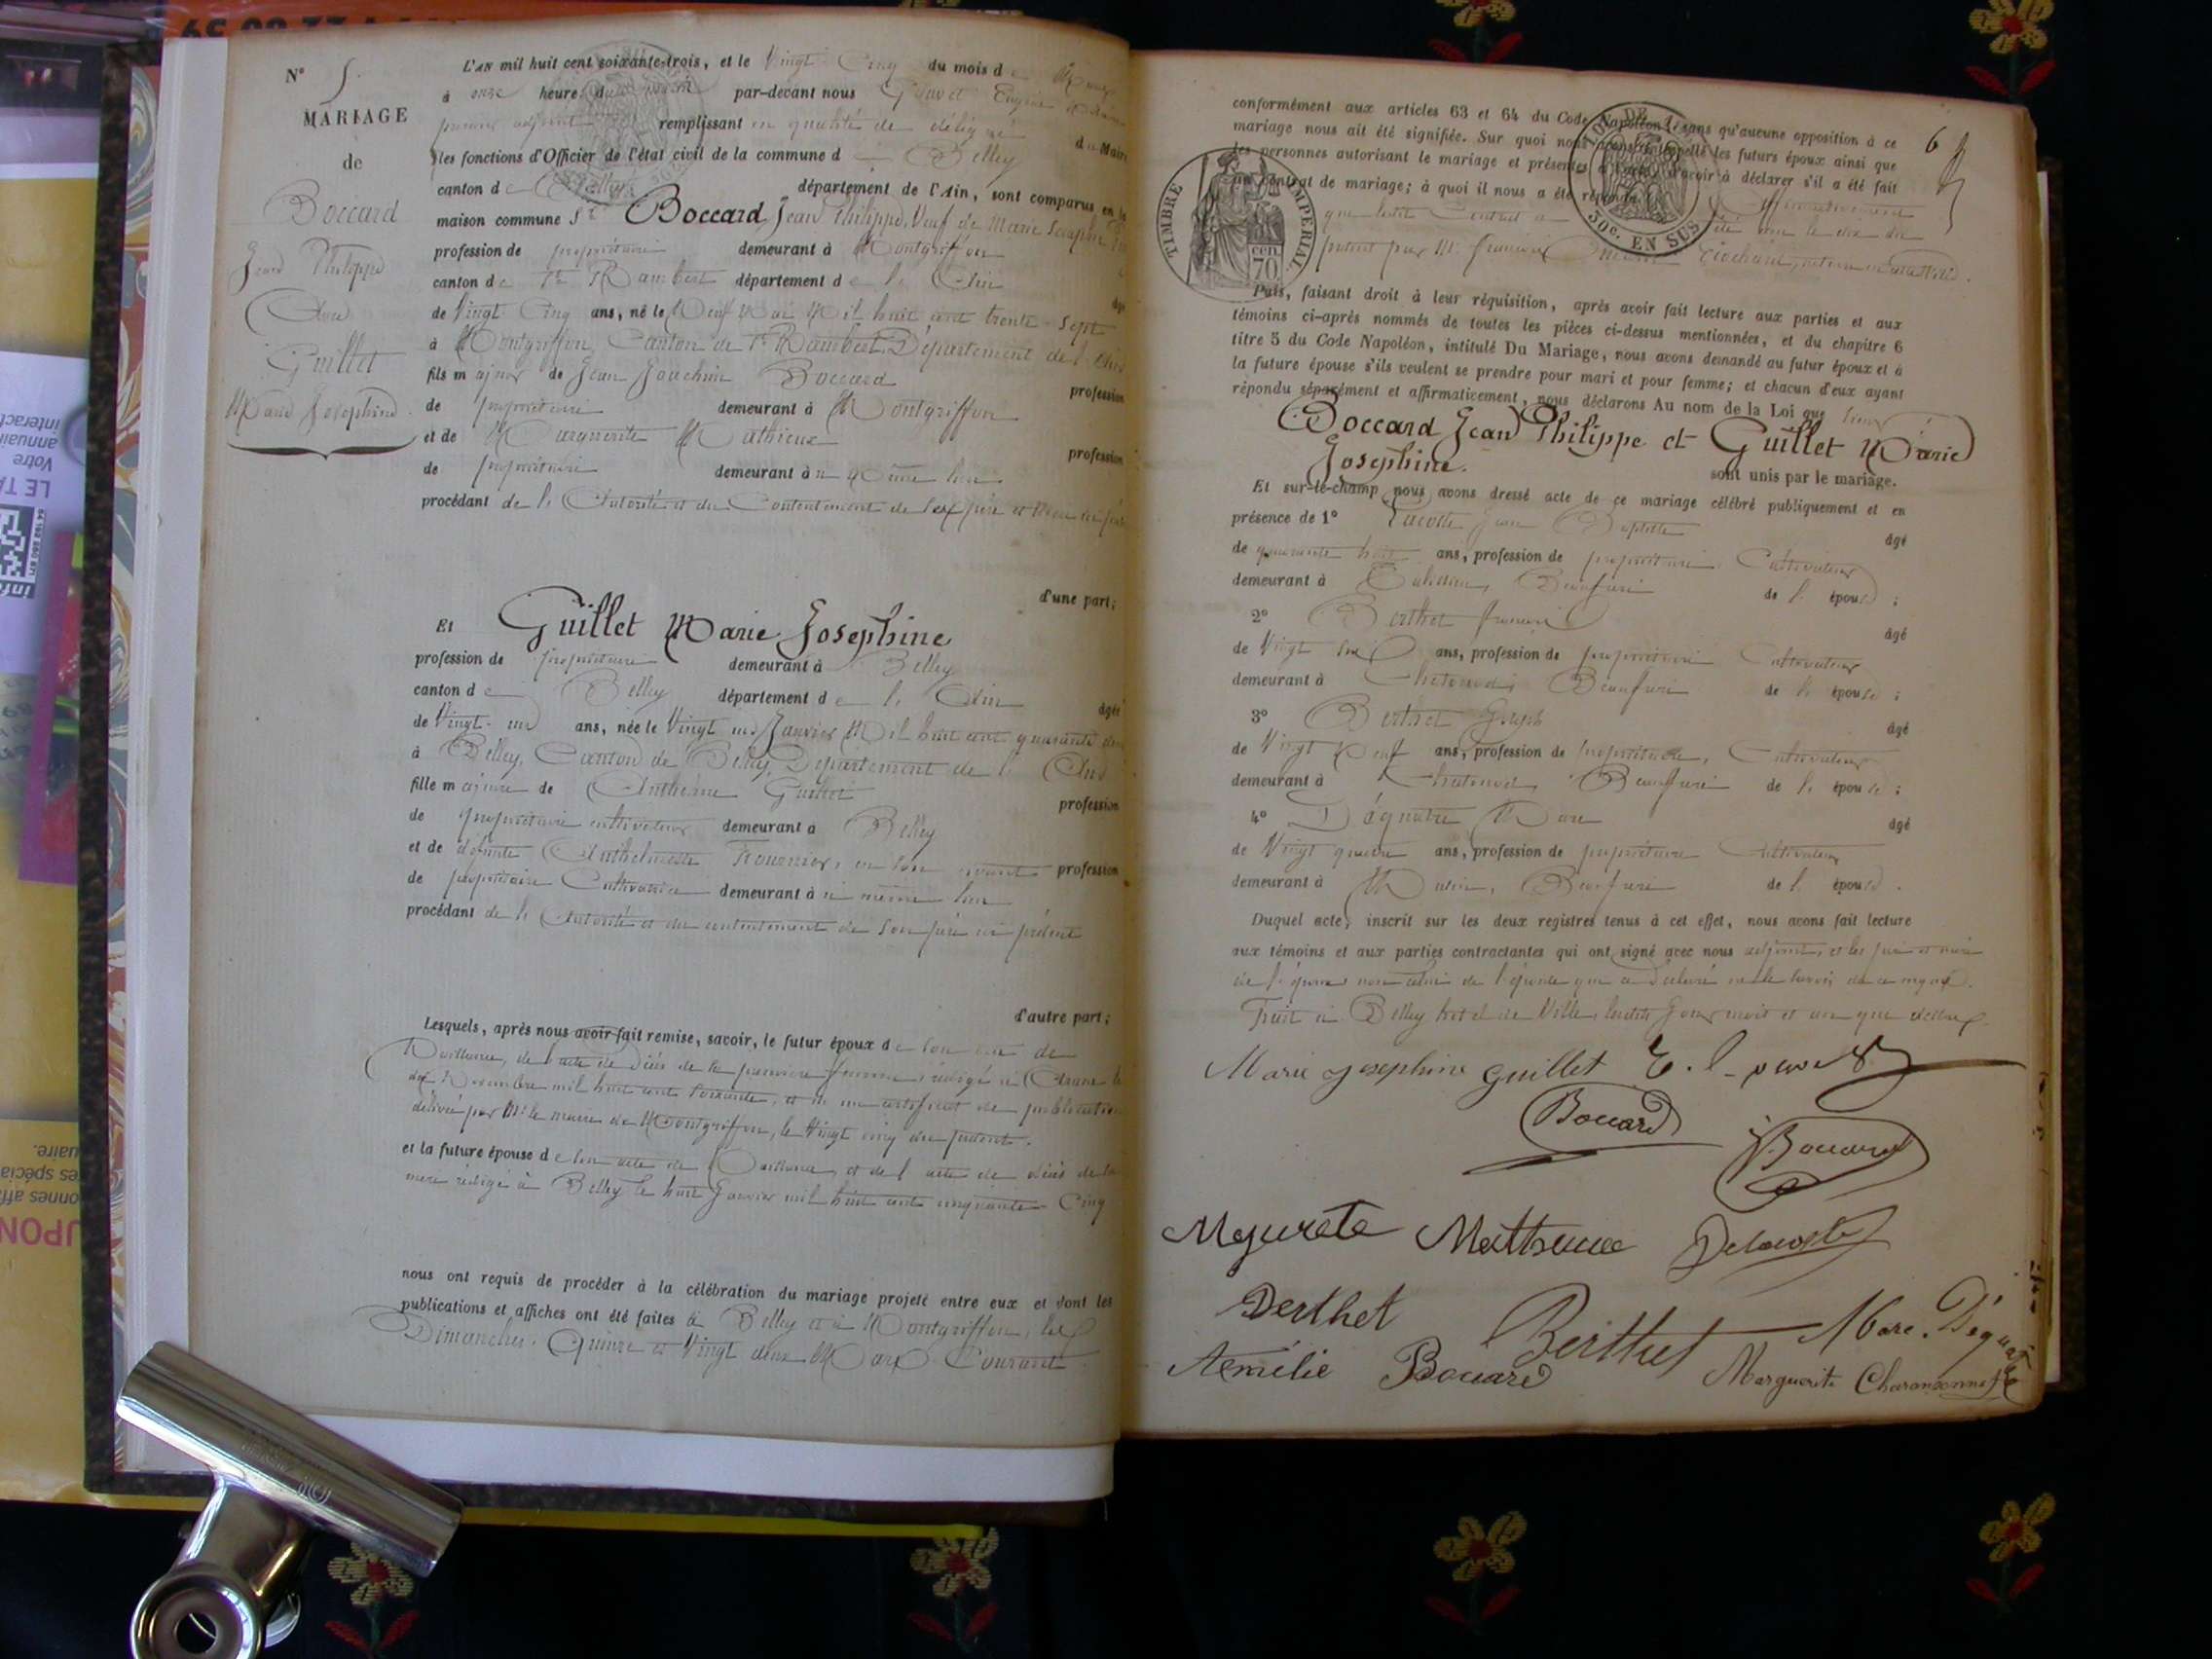 N° 5
MARIAGE
de
Boccard
Jean Philippe
Avec
Guillet
Marie Josephine
L'AN mil huit cent soixante-trois, et le Vingt Cinq du mois de Mars
à onze heures du matin par-devant nous Eugène
premier adjoint remplissant en qualité de délégué du Maire
les fonctions d'Officier de l'état civil de la commune d Belley
canton de Belley département de l'Ain, sont comparus en la
maison commune Sr Boccard Jean Philippe, Veuf de Marie
profession de propriétaire demeurant à Montgriffon
canton de St Rambert département de l'Ain âgé
de Vingt Cinq ans, né le Neuf Mai Mil huit cent trente-sept
à Montgriffon, Canton de St Rambert, Département de l'Ain
fils majeur de Jean Joachim Boccard profession
de propriétaire demeurant à Montgriffon
et de Marguerite Mathieux profession
de propriétaire demeurant à même lieu
procédant de l'Autorité et du Consentement de ses père et Mère
d'une part;
Et Guillet Marie Josephine
profession de propriétaire demeurant à Belley
canton de Belley département de l'Ain âgée
de Vingt-un ans, née le Vingt un Janvier Mil huit cent quarante deux
à Belley, Canton de Belley, Département de l'Ain
fille majeure de Anthelme Guillet profession
de propriétaire cultivateur demeurant à Belley
et de défunte Anthelmette en son vivant profession
de propriétaire Cultivatrice demeurant à même lieu
procédant de l'Autorité et du consentement de son père ici présent
d'autre part;
Lesquels, après nous avoir fait remise, savoir, le futur époux de son acte de
Naissance, de l'acte de décès de sa première femme, rédigé à
dix Novembre mil huit cent soixante, et un certificat de publication
délivré par Mr le maire de Montgriffon, le Vingt cinq du présent.
et la future épouse de son acte de Naissance, et de l'acte de décès de sa
mère rédigé à Belley le huit Janvier mil huit cent cinquante-Cinq
nous ont requis de procéder à la célébration du mariage projeté entre eux et dont les
publications et affiches ont été faites à Belley et à Montgriffon, les
Dimanches, Quinze et Vingt deux Mars Courant
6
conformément aux articles 63 et 64 du Code Napoléon, sans qu'aucune opposition à ce
mariage nous ait été signifiée. Sur quoi nous avons interpellé les futurs époux ainsi que
les personnes autorisant le mariage et présentes d'avoir à déclarer s'il a été fait
un contrat de mariage; à quoi il nous a été répondu Affirmativement
que ledit Contrat a été le dix du
présent par Mr
TIMBRE IMPERIAL
70 cen.
LOI DE
50c. EN SUS
Puis, faisant droit à leur réquisition, après avoir fait lecture aux parties et aux
témoins ci-après nommés de toutes les pièces ci-dessus mentionnées, et du chapitre 6
titre 5 du Code Napoléon, intitulé Du Mariage, nous avons demandé au futur époux et à
la future épouse s'ils veulent se prendre pour mari et pour femme; et chacun d'eux ayant
répondu séparément et affirmativement, nous déclarons Au nom de la Loi que
Boccard Jean Philippe et Guillet Marie
Josephine.
sont unis par le mariage.
Et sur-le-champ nous avons dressé acte de ce mariage célébré publiquement et en
présence de 1° Jean Baptiste âgé
de quarante huit ans, profession de propriétaire Cultivateur
demeurant à de l' époux ;
2° Berthet âgé
de Vingt ans, profession de propriétaire Cultivateur
demeurant à de l' épouse ;
3° Berthet Joseph âgé
de Vingt Neuf ans, profession de propriétaire, Cultivateur
demeurant à de l' épouse ;
4° Déquatre Marc âgé
de Vingt quatre ans, profession de propriétaire Cultivateur
demeurant à de l' époux.
Duquel acte, inscrit sur les deux registres tenus à cet effet, nous avons fait lecture
aux témoins et aux parties contractantes qui ont signé avec nous adjoint, et les père et mère
de l'époux non celui de l'épouse qui a déclaré ne le savoir de ce requis.
Fait à Belley hotel de Ville, lesdits jour mois et an que dessus.
Marie josephine guillet
Boccard
Boccard
Mathieux
Delacoste
Berthet
Berthet
Marc. Déquatre
Aémilie Boccard
Marguerite